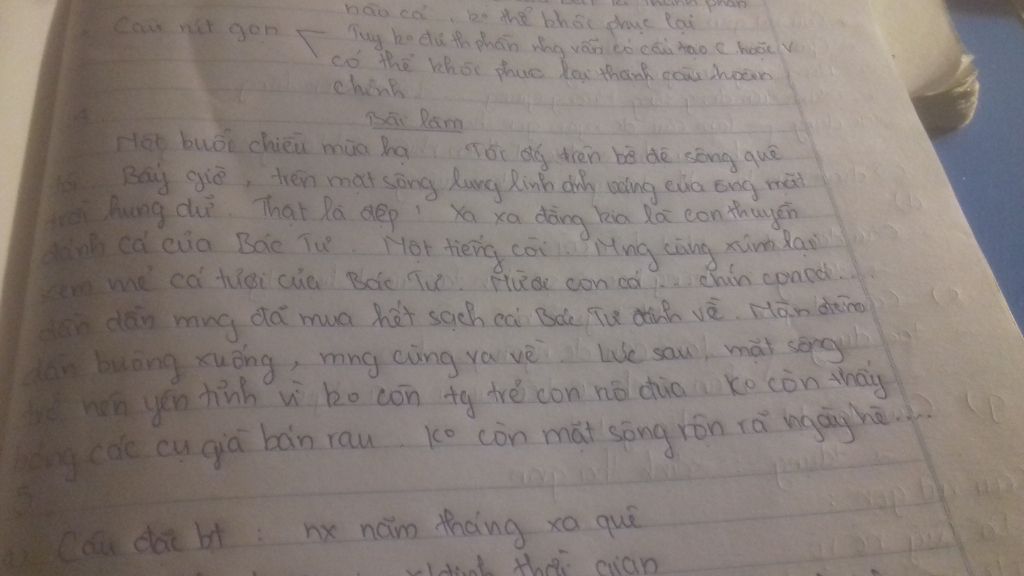 báo cá, ko thể khôc phục lại
Câu rút gọn < Tuy ko đủ th phần nhg vẫn có cấu tạo C hoặc V
có thể khôc phục lại thành câu hoàn
chỉnh
Bài làm
Một buổi chiều mùa hạ. Tôi đg trên bờ đê sông quê
Bấy giờ, trên mặt sông lung linh ánh vàng của ông mặt
trời hung dữ. Thật là đẹp! Xa xa đằng kia là con thuyền
đánh cá của Bác Tư. Một tiếng còi. Mng cùng xúm lại
xem mẻ cá tươi của Bác Tư. Mười con cá,... chín con cá...
dần dần mng đã mua hết sạch cá Bác Tư đánh về. Màn đêm
dần buông xuống, mng cũng ra về. Lúc sau, mặt sông
trở nên yên tĩnh vì ko còn tg trẻ con nô đùa. Ko còn thấy
bóng các cụ già bán rau. Ko còn mặt sông rộn rã ngày hè....
5
Câu đặc bt : nx năm tháng xa quê
thời gian